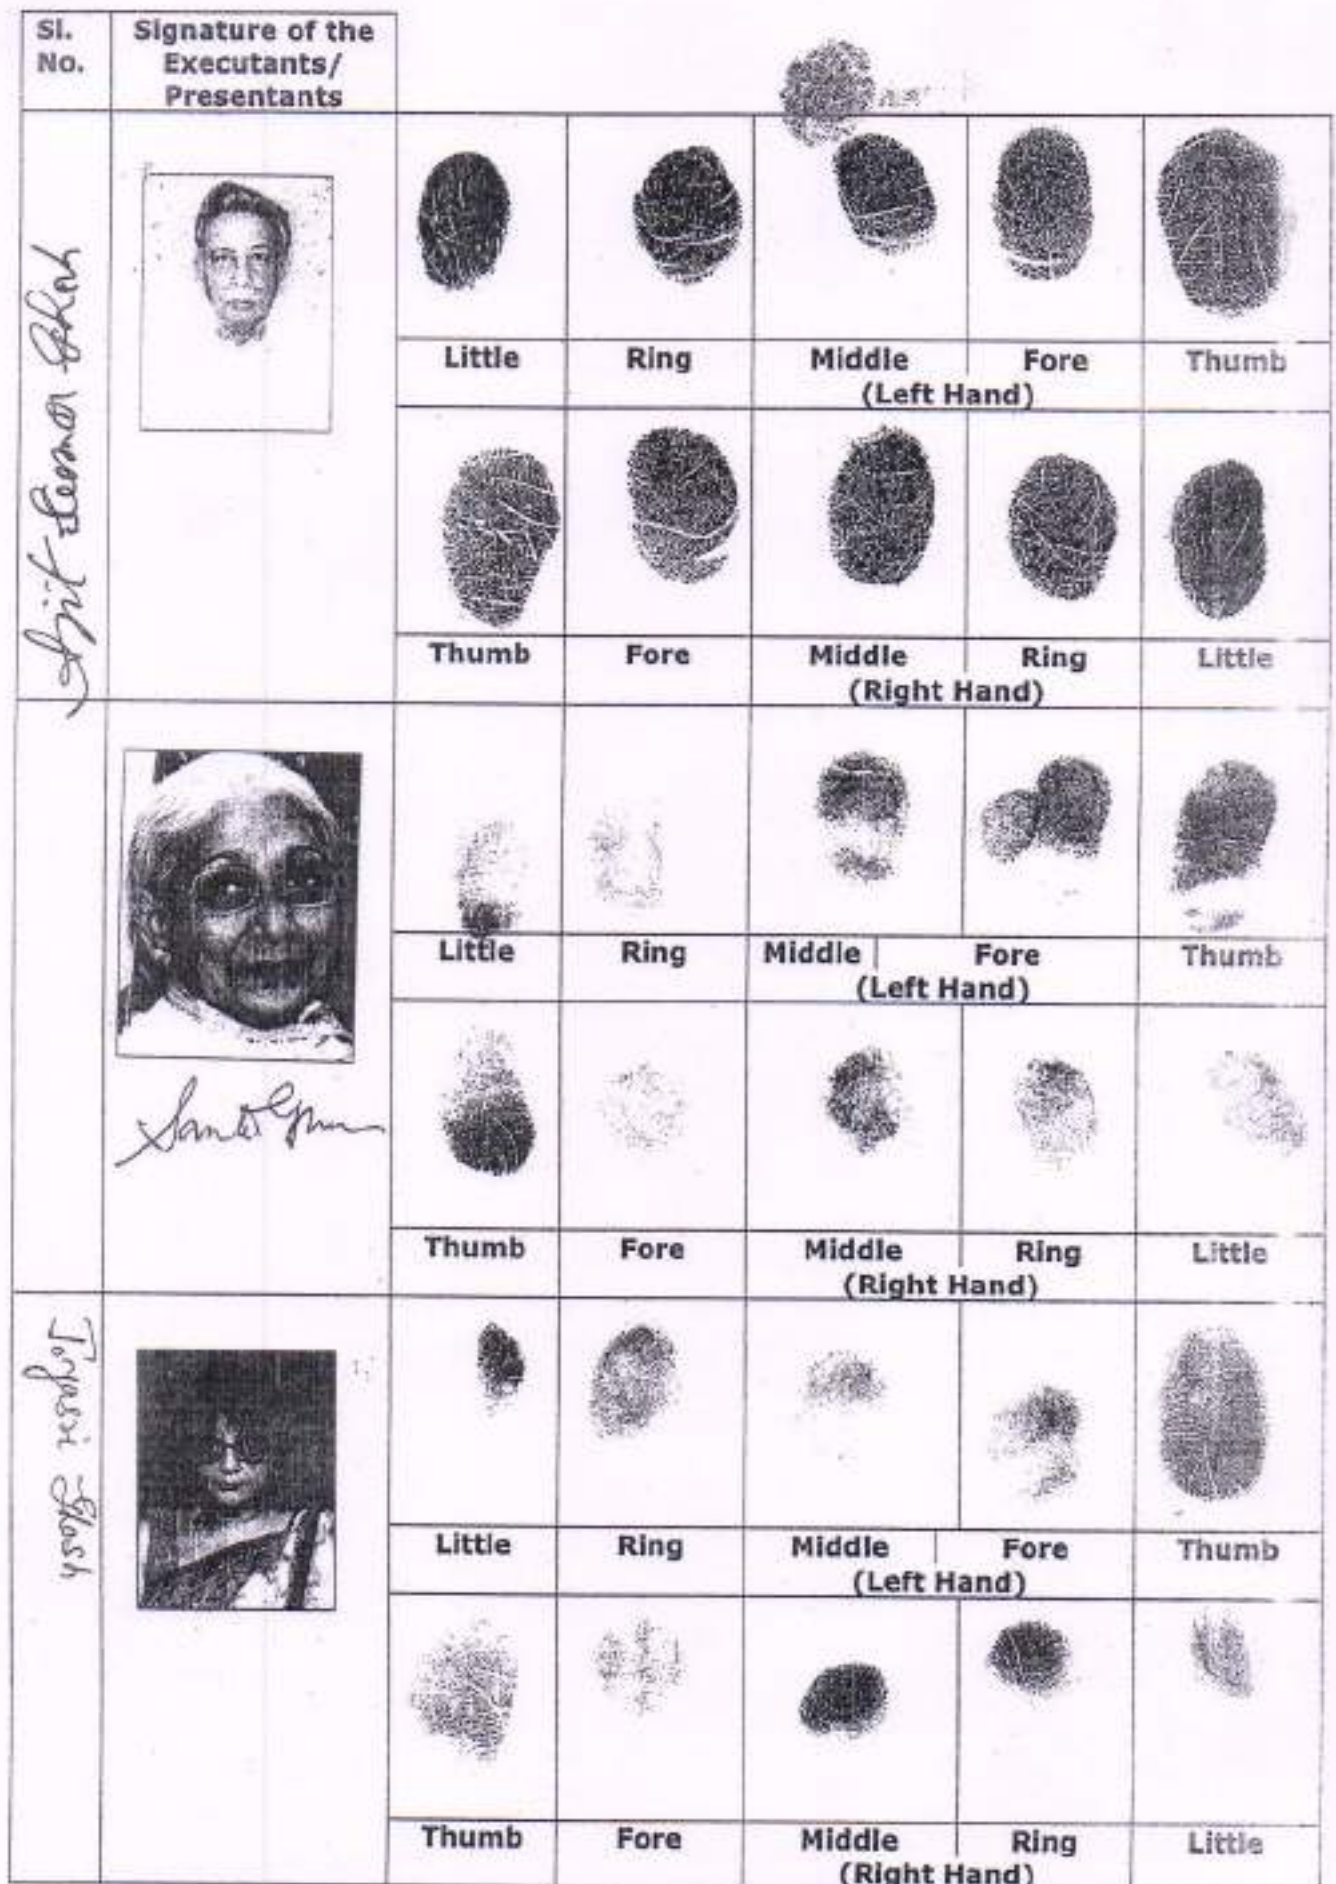 Sl. No.
Signature of the Executants/ Presentants
Little Ring Middle Fore Thumb
(Left Hand)
Thumb Fore Middle Ring Little
(Right Hand)
Ajit Kumar Ghosh
Little Ring Middle Fore Thumb
(Left Hand)
Thumb Fore Middle Ring Little
(Right Hand)
Little Ring Middle Fore Thumb
(Left Hand)
Thumb Fore Middle Ring Little
(Right Hand)
Ghosh